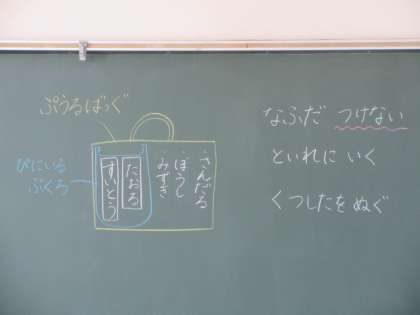 ぷうるばっぐ
びにいる
ぶくろ
・さんだる
・ぼうし
・みずぎ
たおる
すいとう
なふだ つけない
といれに いく
くつしたを ぬぐ